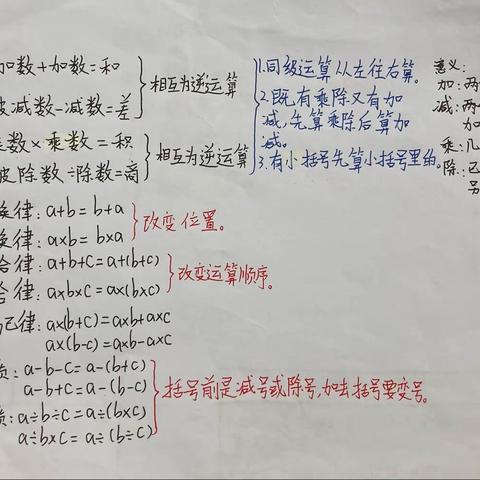 加数+加数=和
被减数-减数=差
相互为逆运算
乘数×乘数=积
被除数÷除数=商
相互为逆运算
1.同级运算从左往右算。
2.既有乘除又有加
减,先算乘除后算加
减。
3.有小括号先算小括号里的。
意义:
加:两
减:两
加
乘:几
除:已
另
律:a+b=b+a
律:a×b=b×a
改变位置。
合律:a+b+c=a+(b+c)
合律:a×b×c=a×(b×c)
改变运算顺序。
配律:a×(b+c)=a×b+a×c
a×(b-c)=a×b-a×c
质:a-b-c=a-(b+c)
a-b+c=a-(b-c)
质:a÷b÷c=a÷(b×c)
a÷b×c=a÷(b÷c)
括号前是减号或除号,加去括号要变号。